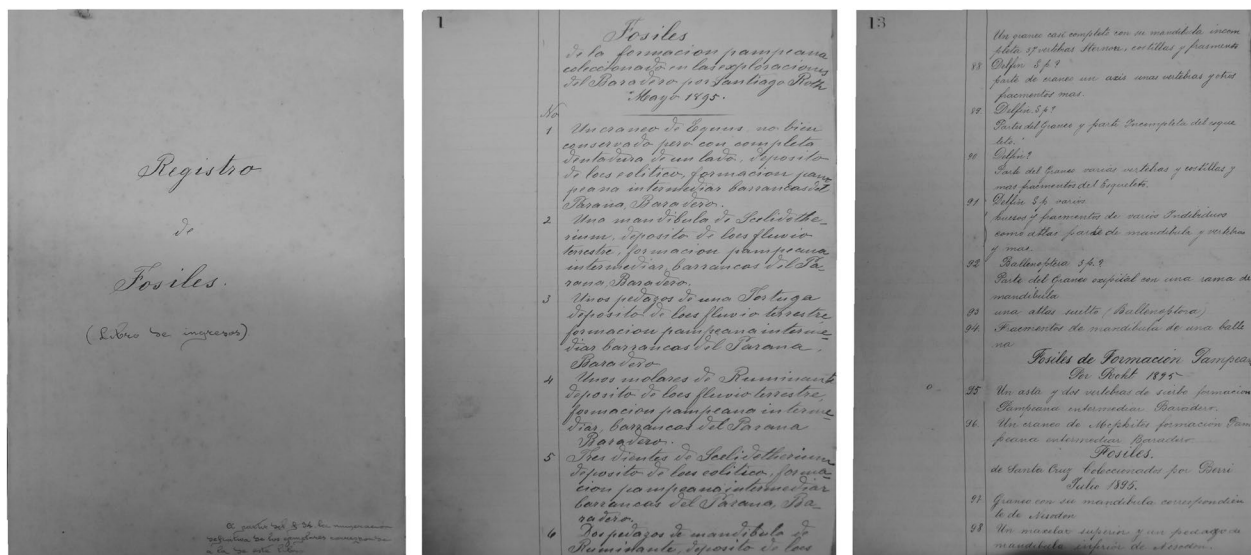 Registro
de
Fosiles.
(Libro de ingresos)
1
Fosiles
de la formacion pampeana
coleccionado en las exploraciones
del Baradero por Santiago Roth
Mayo 1895.
No
1 Un craneo de Equus no bien
conservado pero con completa
dentadura de un lado, deposito
de loes eolitico, formacion pam
peana intermediar barrancas del
Parana, Baradero.
2 Una mandibula de Scelidothe-
rium, deposito de loes fluvio
terrestre, formacion pampeana
intermediar, barrancas del Pa-
rana, Baradero.
3 Unos pedazos de una Tortuga
deposito de loes fluvio terrestre
formacion pampeana interme-
diar barrancas del Parana,
Baradero
4 Unos molares de Ruminante
deposito de loes fluvio terrestre,
formacion pampeana interme-
diar, barrancas del Parana
Baradero.
5 Tres dientes de Scelidotherium
deposito de loes eolitico, forma-
cion pampeana intermediar
barrancas del Parana, Ba-
radero.
6 Dos pedazos de mandibula de
Rumistante, deposito de loes
13
Un craneo casi completo con su mandibula incom
pleta 27 vertebras Sternon, costillas y fragmentos
88 Delfin S.p?
parte de craneo un axis unas vertebras y otros
fracmentos mas.
89 Delfin S.p?
Partes del Craneo y parte Incompleta del esque
leto.
90 Delfin?
Parte del Craneo varias vertebras y costillas y
mas fracmentos del Esqueleto.
91 Delfin S.p. varios
huesos y fracmentos de varios Indibiduos
como atlas parte de mandibula y vertebras
y mas.
92 Ballenoptera s.p.?
Parte del Craneo occipital con una rama de
mandibula
93 una atlas suelto (Ballenoptera)
94 Fracmentos de mandibula de una balle
na
Fosiles de Formación Pampean
Por Roht 1895
95 Un asta y dos vertebras de sierbo formacion
Pampeana intermediar Baradero.
96 Un craneo de Mephites formación Pam
peana intermediar Baradero
Fosiles.
de Santa Cruz Coleccionados por Berri
Julio 1895.
97 Craneo con su mandibula correspondien
te de Nesodon
98 Un maxilar superior y un pedazo de
mandibula inferior de Nesodon